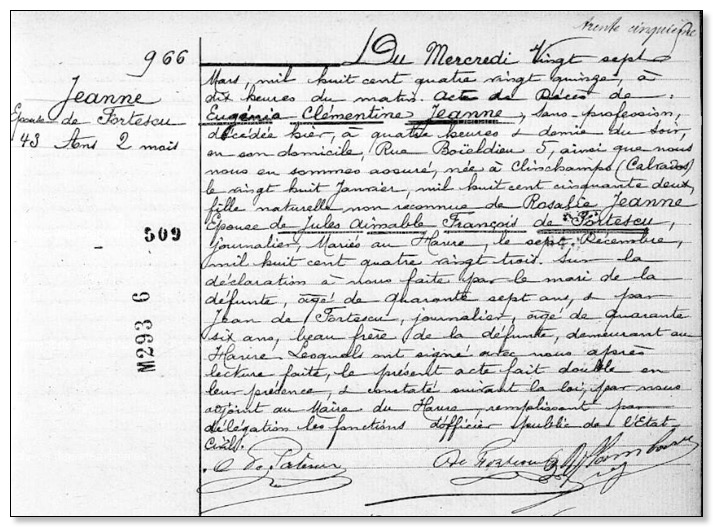 trente cinquième
966
Jeanne
Epouse de Fortescu
43 Ans 2 mois
509
M293 6
Du Mercredi Vingt sept
Mars, mil huit cent quatre vingt quinze, à
dix heures du matin. Acte de Décès de :
Eugénia Clémentine Jeanne, sans profession,
décédée hier, à quatre heures & demie du soir,
en son domicile, Rue Boïeldieu 5, ainsi que nous
nous en sommes assuré, née à Clinchamps (Calvados)
le vingt huit Janvier, mil huit cent cinquante deux,
fille naturelle non reconnue de Rosalie Jeanne
Epouse de Jules Aimable François de Fortescu,
journalier, Mariés au Havre, le sept Décembre,
mil huit cent quatre vingt trois. Sur la
déclaration à nous faite par le mari de la
défunte, âgé de quarante sept ans, & par
Jean de Fortescu, journalier, âgé de quarante
six ans, beau frère de la défunte, demeurant au
Havre Lesquels ont signé avec nous après
lecture faite, le présent acte fait double en
leur présence, & constaté suivant la loi, par nous
adjoint au Maire du Havre, remplissant par
délégation les fonctions d'officier public de l'Etat-
Civil.